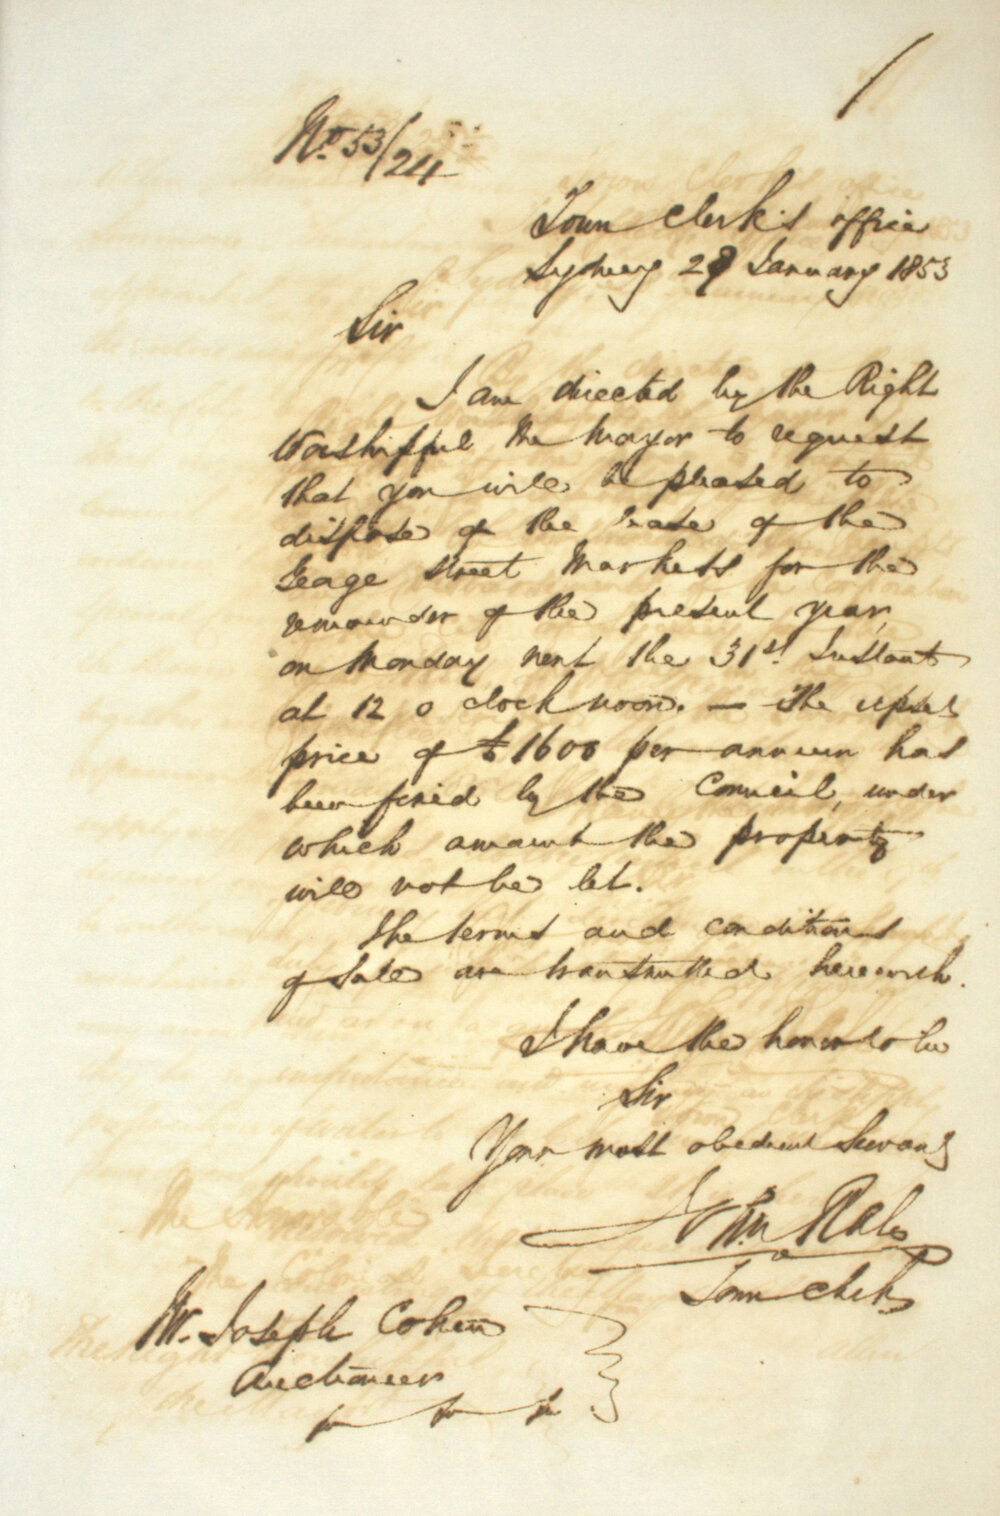 No. 53/24
Town Clerk's office
Sydney 29 January 1853
Sir
I am directed by the Right
Worshipful the Mayor to request
that you will be pleased to
dispose of the lease of the
George Street Markets for the
remainder of the present year,
on Monday next the 31st Instant
at 12 o clock noon. — The upset
price of £1600 per annum has
been fixed by the Council, under
which amount the property
will not be let.
The terms and conditions
of Sale are transmitted herewith.
I have the honor to be
Sir
Your most obedient Servant
John Rae
Town Clerk
Mr. Joseph Cohen
Auctioneer